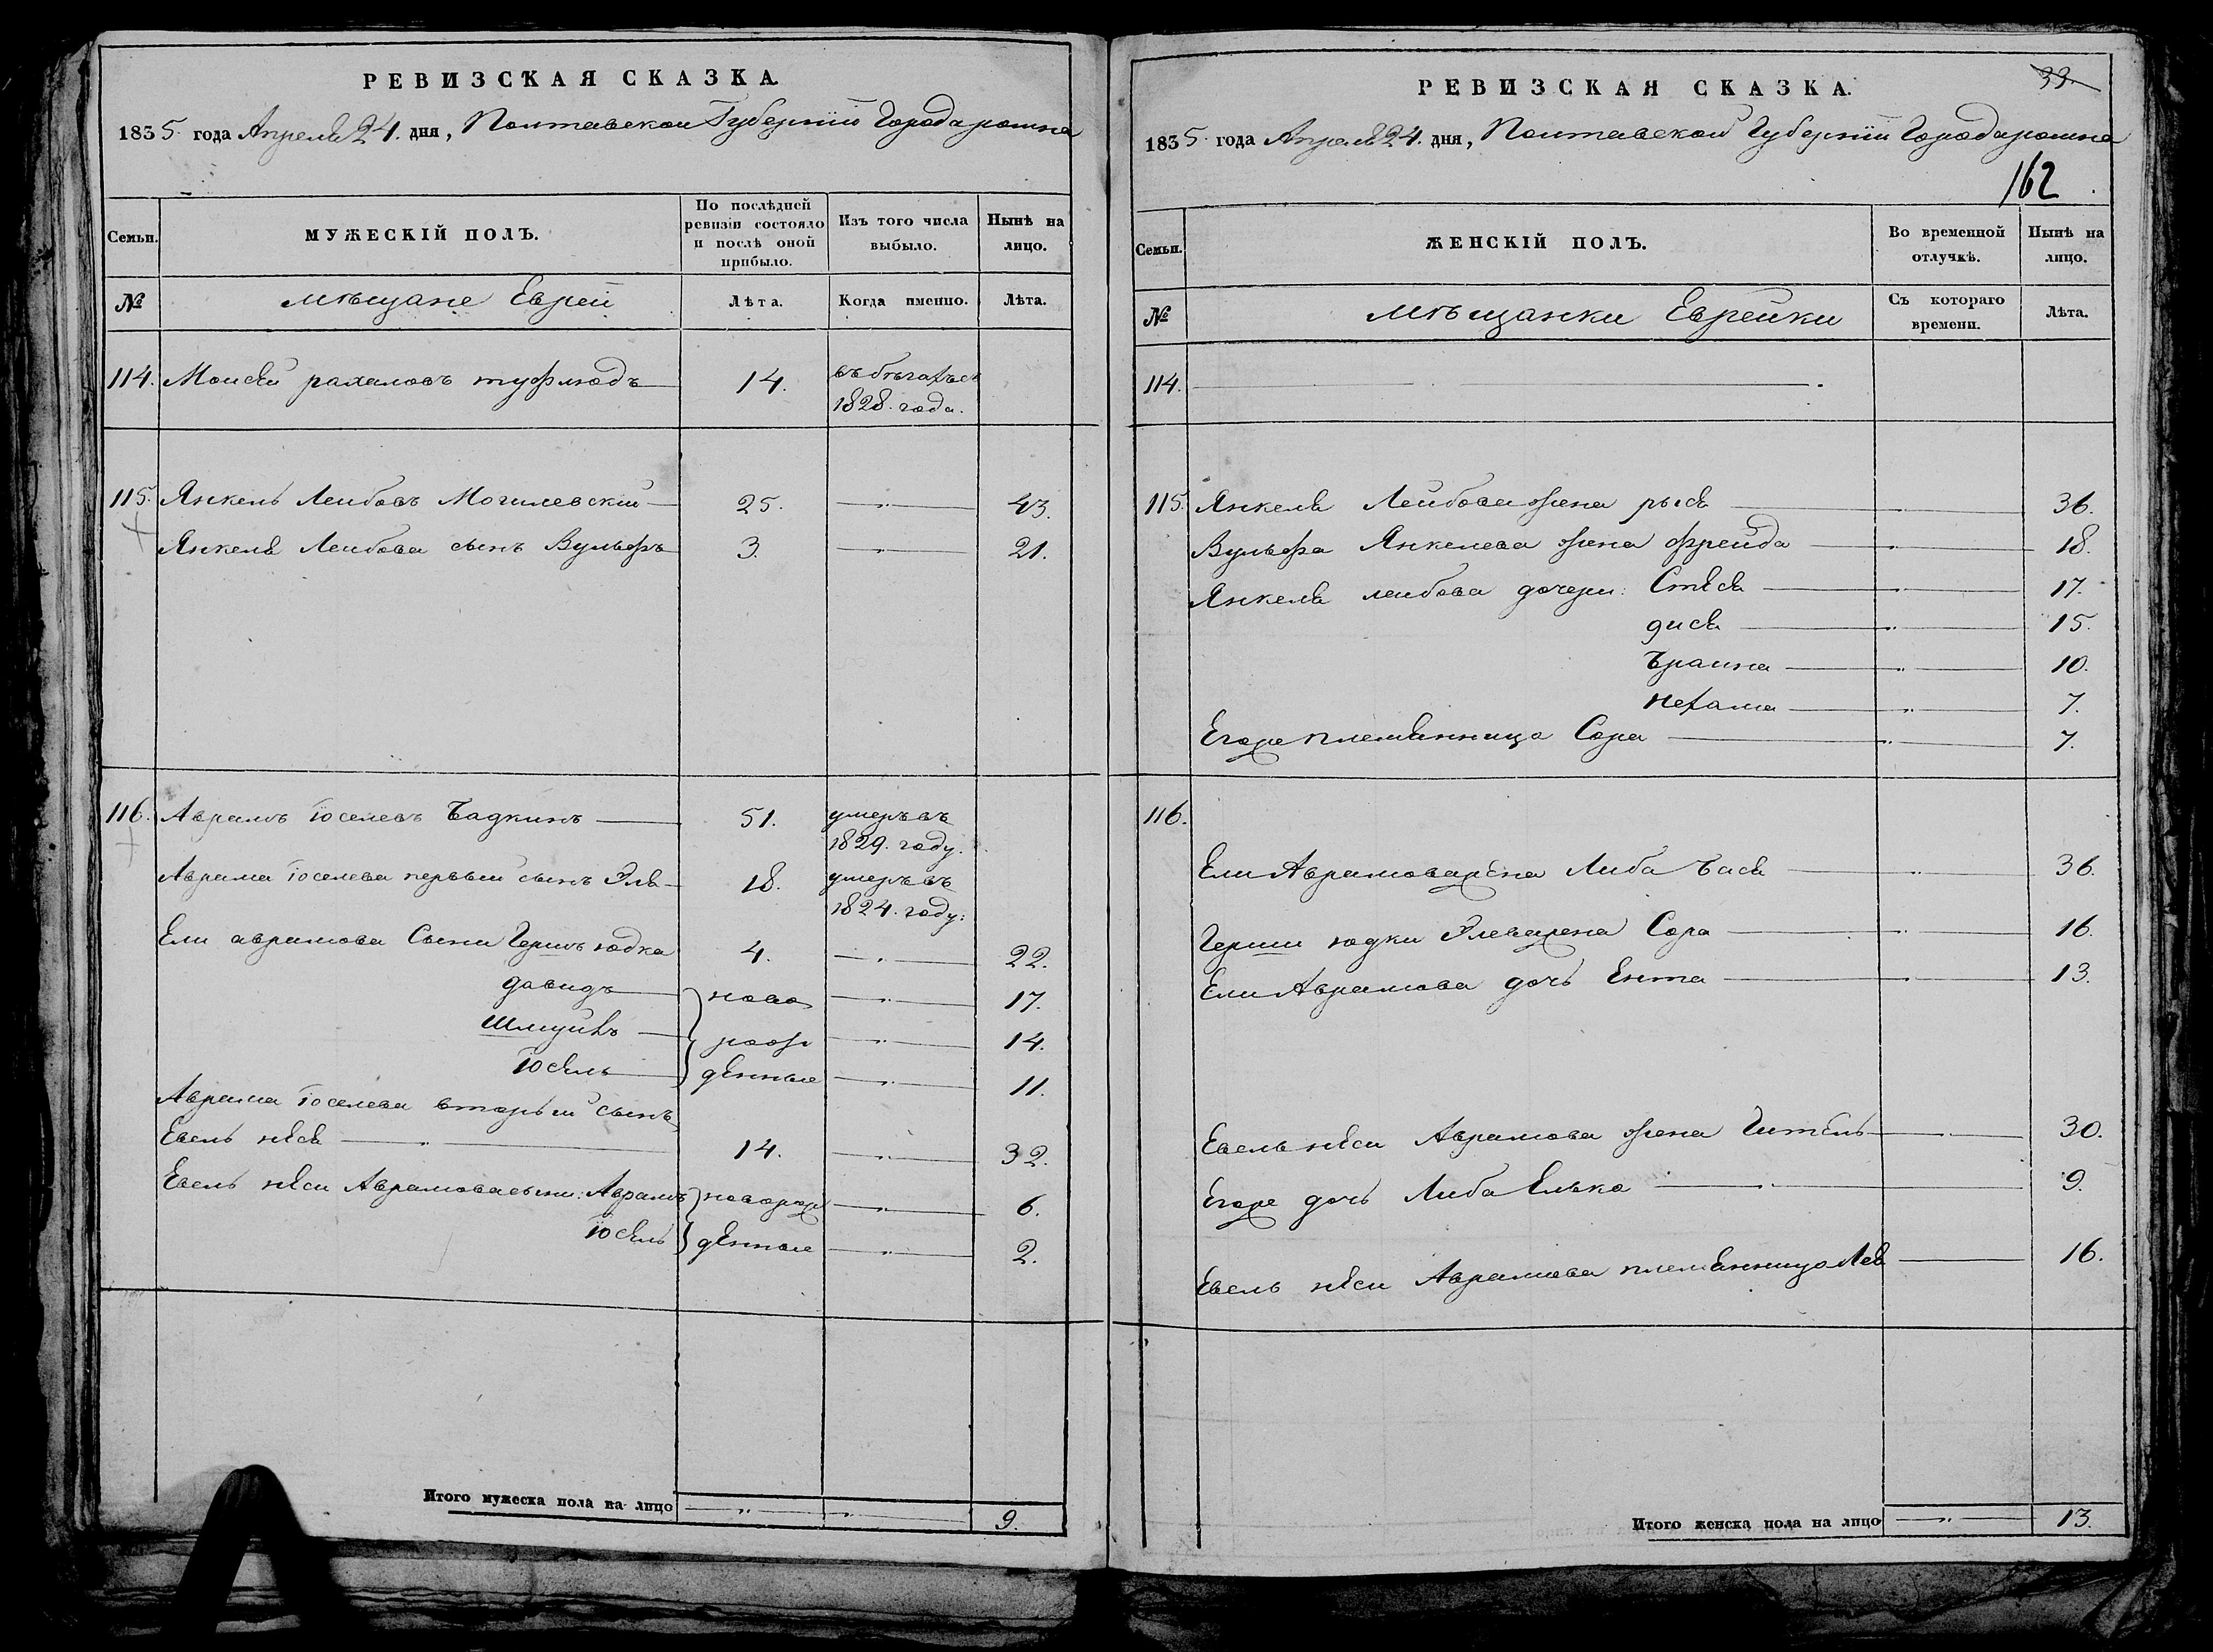 РЕВИЗСКАЯ СКАЗКА.
1835 года Апреля 24. дня, Полтавской Губернїи Города ромна
Семьи.
МУЖЕСКІЙ ПОЛЪ.
По послѣдней ревизіи состояло и послѣ оной прибыло.
Изъ того числа выбыло.
Нынѣ на лицо.
№
мѣщане Еврей
Лѣта.
Когда именно.
Лѣта.
114. Моисей рахмаловъ 14. въ бѣгахъ съ
1828. года.
115. Янкель Лейбовъ Могилевский 25. 43.
Янкеля Лейбова сынъ Вульфъ 3. 21.
116. Аврамъ Іоселевъ Бадкинъ 51. умеръ въ
1829. году.
Аврама Іоселева первый сынъ Эля 18. умеръ въ
1824. году.
Ели аврамова Сыни Гершъ юдка 4. 22.
давидъ ново 17.
Шмуйль рож 14.
Іосель денные 11.
Аврама Іоселева вторый сынъ
Евель нѣся 14. 32.
Евель нѣси Аврамова сыни: Аврамъ новорож 6.
Іосель денные 2.
Итого мужеска пола на лицо 9.
РЕВИЗСКАЯ СКАЗКА.
33.
1835 года Апреля 24. дня, Полтавской Губернїи Города ромна
162
Семьи.
ЖЕНСКІЙ ПОЛЪ.
Во временной отлучкѣ.
Нынѣ на лицо.
№
мѣщанки Еврейки
Съ котораго времени.
Лѣта.
114.
115. Янкеля Лейбова жена рыся 36.
Вульфа Янкелева жена фрейда 18.
Янкеля лейбова дочери: Стеся 17.
дися 15.
Браина 10.
нехама 7.
Егоже племянница Сора 7.
116.
Ели Аврамова жена Либа Бася 36.
Герши юдки Элева жена Сора 16.
Ели Аврамова дочь Ента 13.
Евель нѣси Аврамова жена Гитель 30.
Егоже дочь Либа Елька 9.
Евель нѣси Аврамова племянница Лея 16.
Итого женска пола на лицо 13.